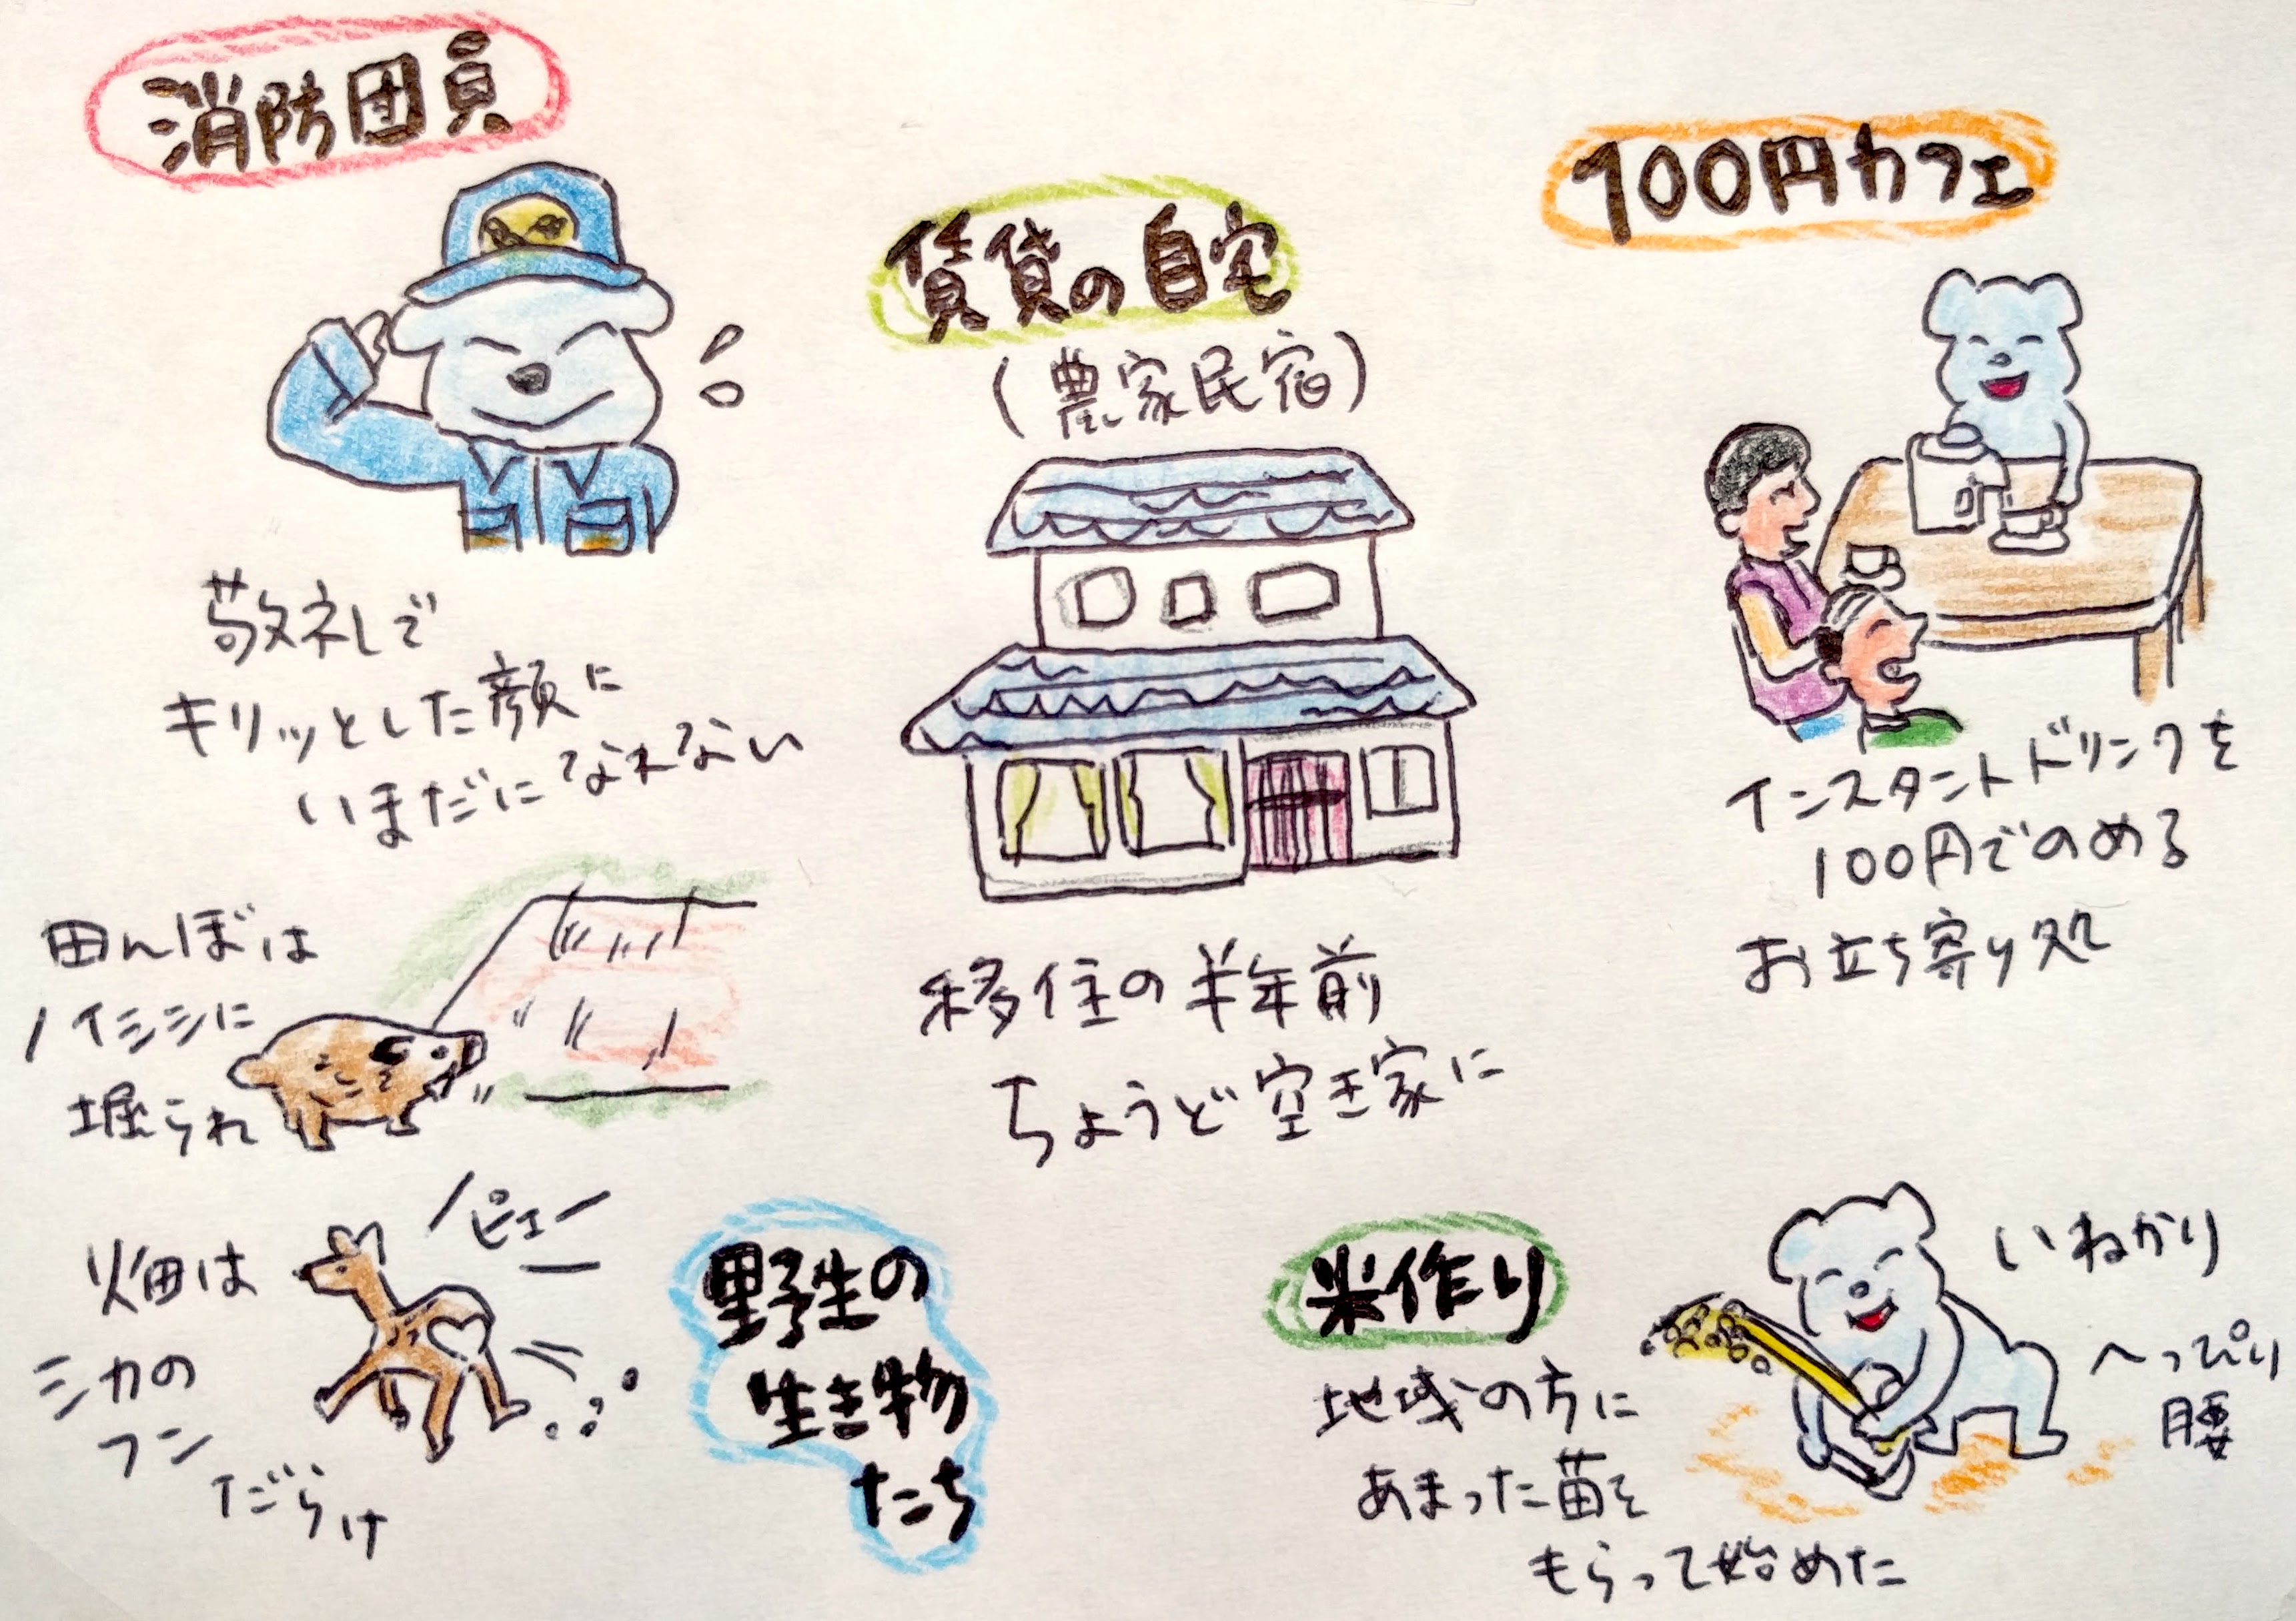 消防団員
敬礼で
キリッとした顔に
いまだになれない
賃貸の自宅
(農家民宿)
移住の半年前
ちょうど空き家に
100円カフェ
インスタントドリンクを
100円でのめる
お立ち寄り処
田んぼは
イノシシに
堀られ
ピュー
畑は
シカの
フン
だらけ
野生の
生き物
たち
米作り
地域の方に
あまった苗を
もらって始めた
いねかり
へっぴり
腰